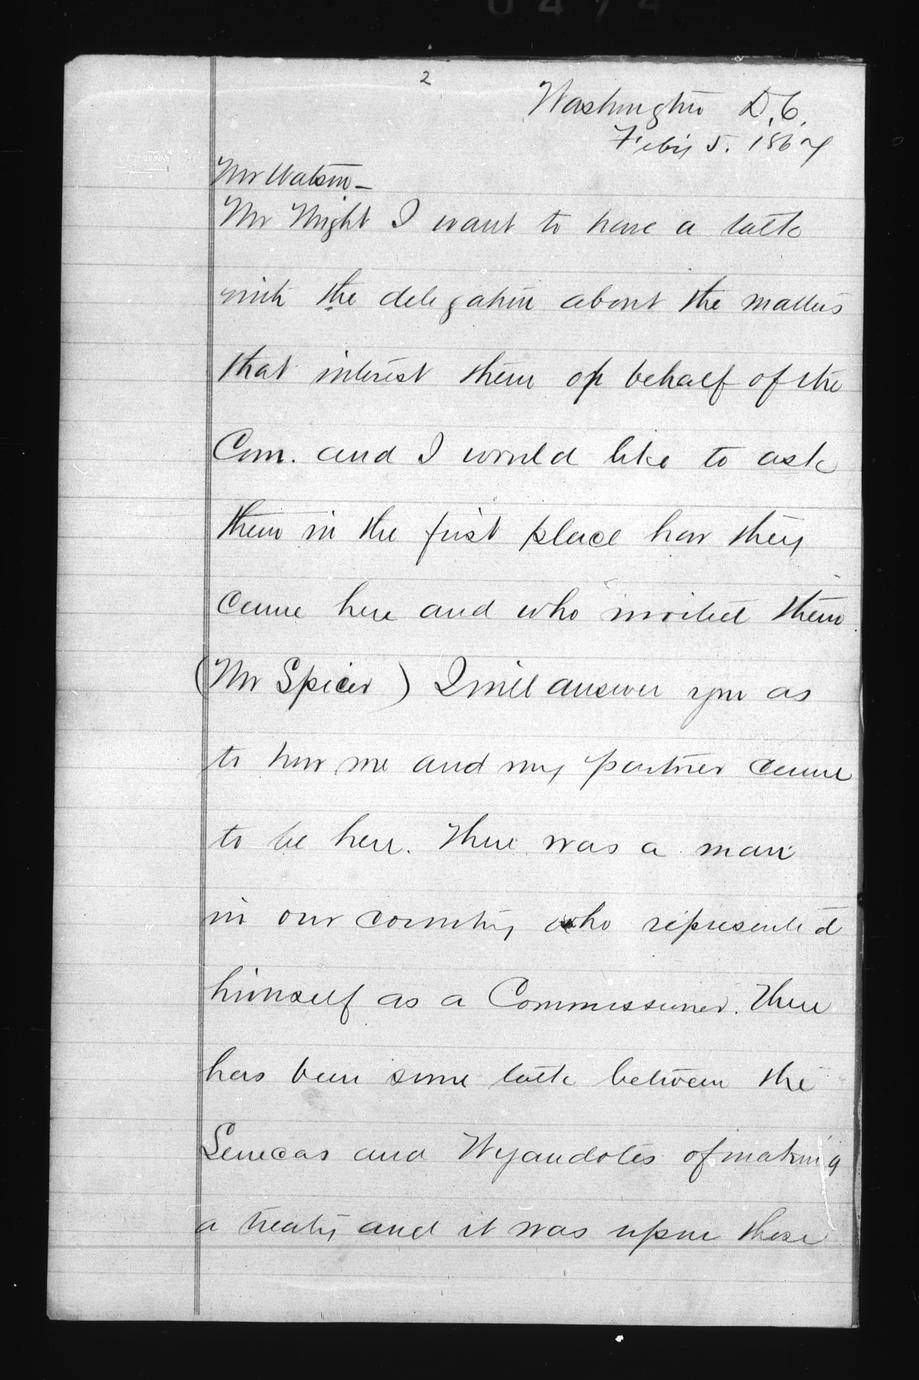 2
Washington D.C.
Feb'y 5. 1867
Mr Watson—
Mr Wright I want to have a talk
with the delegation about the matters
that interest them op behalf of the
Com. and I would like to ask
them in the first place how they
came here and who invited them
(Mr Spicer) I will answer you as
to how me and my partner came
to be here. There was a man
in our country who represented
himself as a Commissioner. There
has been some talk between the
Senecas and Wyandotes of making
a treaty and it was upon these